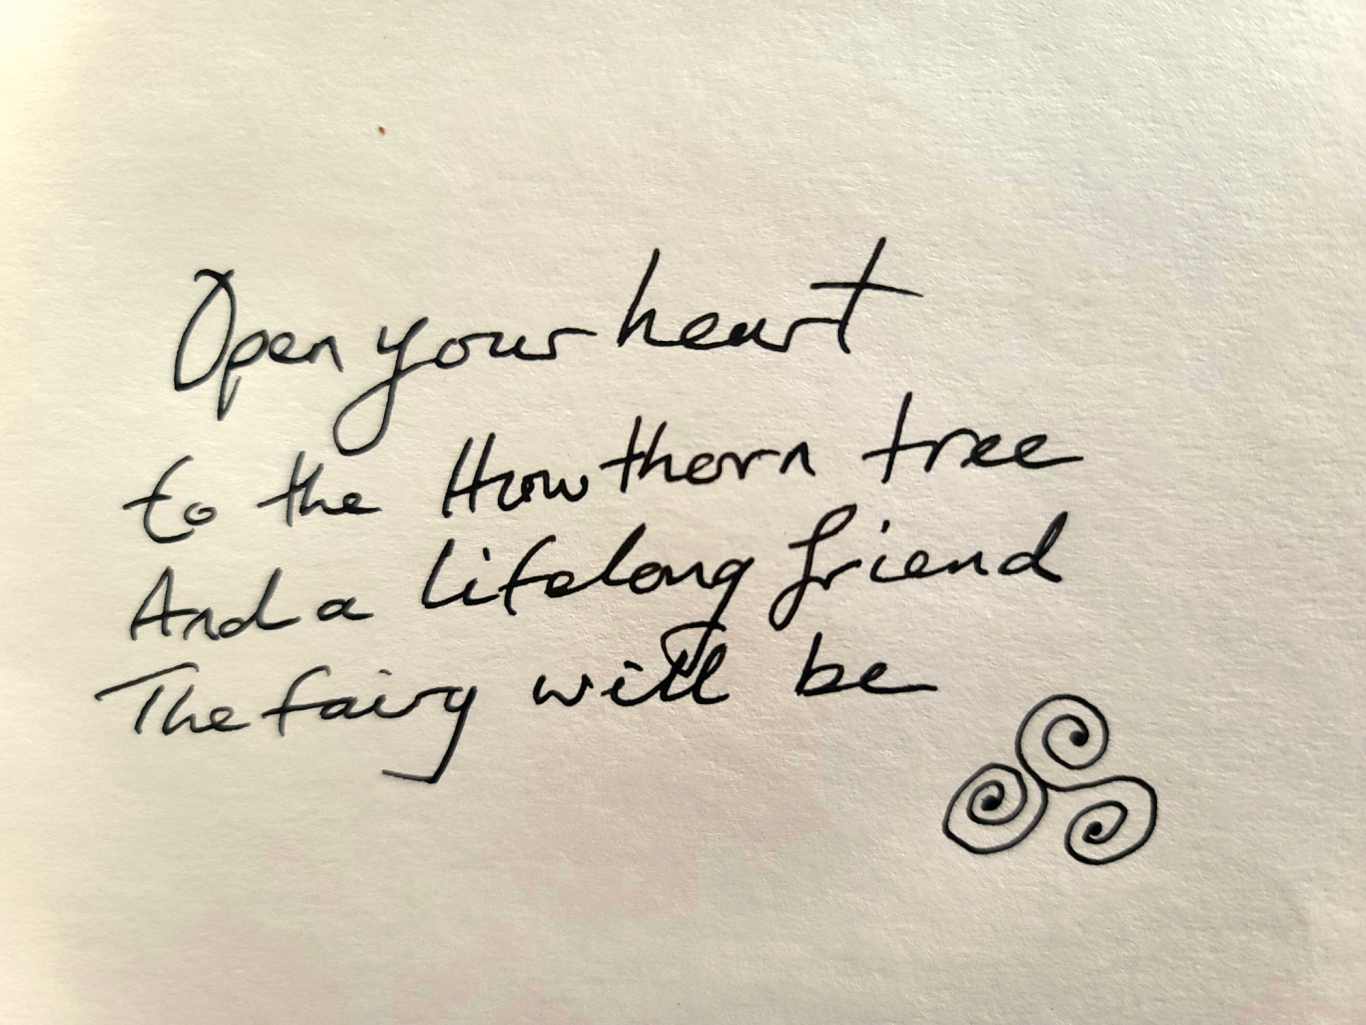 Open your heart
to the Hawthorn tree
And a lifelong friend
The fairy will be